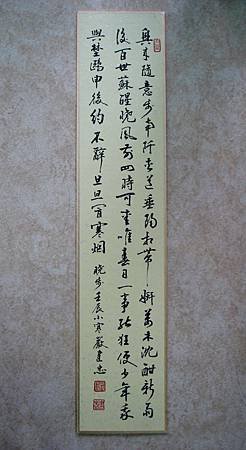 興來隨意步南阡夾道垂楊相帶妍萬木沈酣新雨
後百世蘇醒曉風前四時可愛唯春日一事能狂便少年我
與埜鷗申後約不辭旦旦冒寒烟 曉步 壬辰小寒 嚴建忠